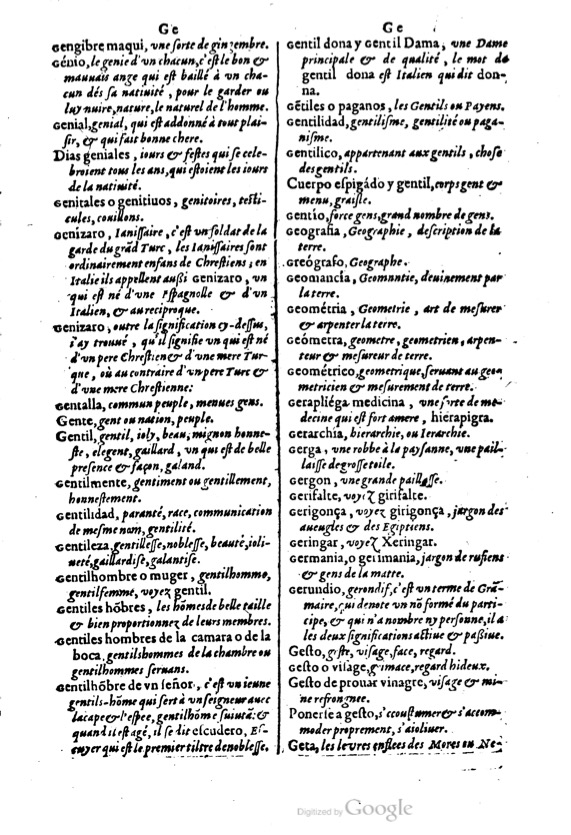 Ge
Gengibre maqui, vne sorte de gingembre.
Génio, le genie d'vn chacun, c'est le bon &
mauuais ange qui est baillé à vn cha-
cun dés sa natiuité, pour le garder ou
luy nuire, nature, le naturel de l'homme.
Genial, genial, qui est addonné à tout plai-
sir, & qui fait bonne chere.
Dias geniales, iours & festes qui se cele-
broient tous les ans, qui estoient les iours
de la natiuité.
Genitales o genitiuos, genitoires, testi-
cules, couillons.
Genizaro, Ianissaire, c'est vn soldat de la
garde du grãd Turc, les Ianissaires sont
ordinairement enfans de Chrestiens; en
Italie ils appellent außi Genizaro, vn
qui est né d'vne Espagnolle & d'vn
Italien, & au reciproque.
Genizaro, outre la signification cy-dessus,
i'ay trouué, qu'il signifie vn qui est né
d'vn pere Chrestien & d'vne mere Tur-
que, où au contraire d'vn pere Turc &
d'vne mere Chrestienne:
Gentalla, commun peuple, menues gens.
Gente, gent ou nation, peuple.
Gentil, gentil, ioly, beau, mignon honne-
ste, elegent, gaillard, vn qui est de belle
presence & façon, galand.
Gentilmente, gentiment ou gentillement,
honnestement.
Gentilidad, paranté, race, communication
de mesme nom, gentilité.
Gentileza, gentillesse, noblesse, beauté, ioli-
ueté, gaillardise, galantise.
Gentilhombre o muger, gentilhomme,
gentilfemme, voyez gentil.
Gentiles hõbres, les hõmes de belle taille
& bien proportionnez de leurs membres.
Gentiles hombres de la camara o de la
boca, gentilshommes de la chambre ou
gentilhommes seruans.
Gentilhõbre de vn señor, c'est vn ieune
gentils-hõme qui sert à vn seigneur auec
la cape & l'espee, gentilhõme suiuãt: &
quand il est agé, il se dit escudero, Es-
cuyer qui est le premier tiltre de noblesse.
Ge
Gentil dona y gentil Dama, vne Dame
principale & de qualité, le mot de
gentil dona est Italien qui dit don-
na.
Gẽtiles o paganos, les Gentils ou Payens.
Gentilidad, gentilisme, gentilité ou paga-
nisme.
Gentilico, appartenant aux gentils, chose
des gentils.
Cuerpo espigádo y gentil, corps gent &
menu, graisle.
Gentio, force gens, grand nombre de gens.
Geografia, Geographie, description de la
terre.
Greógrafo, Geographe.
Geomancia, Geomantie, deuinement par
la terre.
Geométria, Geometrie, art de mesurer
& arpenter la terre.
Geómetra, geometre, geometrien, arpen-
teur & mesureur de terre.
Geométrico, geometrique, seruant au geo-
metricien & mesurement de terre.
Gerapliéga medicina, vne sorte de me-
decine qui est fort amere, hierapigra.
Gerarchía, hierarchie, ou Ierarchie.
Gerga, vne robbe à la paysanne, vne pail-
laisse de grosse toile.
Gergon, vne grande paillasse.
Gerifalte, voyez girifalte.
Gerigonça, voyez girigonça, jargon des
aueugles & des Egiptiens.
Geringar, voyez Xeringar.
Germania, o gerimania, jargon de rufiens
& gens de la matte.
Gerundio, gerondif, c'est vn terme de Grã-
maire, qui denote vn nõ formé du parti-
cipe, & qui n'a nombre ny personne, il a
les deux significations actiue & paßiue.
Gesto, geste, visage, face, regard.
Gesto o visage, grimace, regard hideux.
Gesto de prouar vinagre, visage & mi-
ne refrongnee.
Ponerse a gesto, s'accoustumer & s'accom-
moder proprement, s'aioliuer.
Geta, les leures enflees des Mores ou Ne-
Digitized by Google